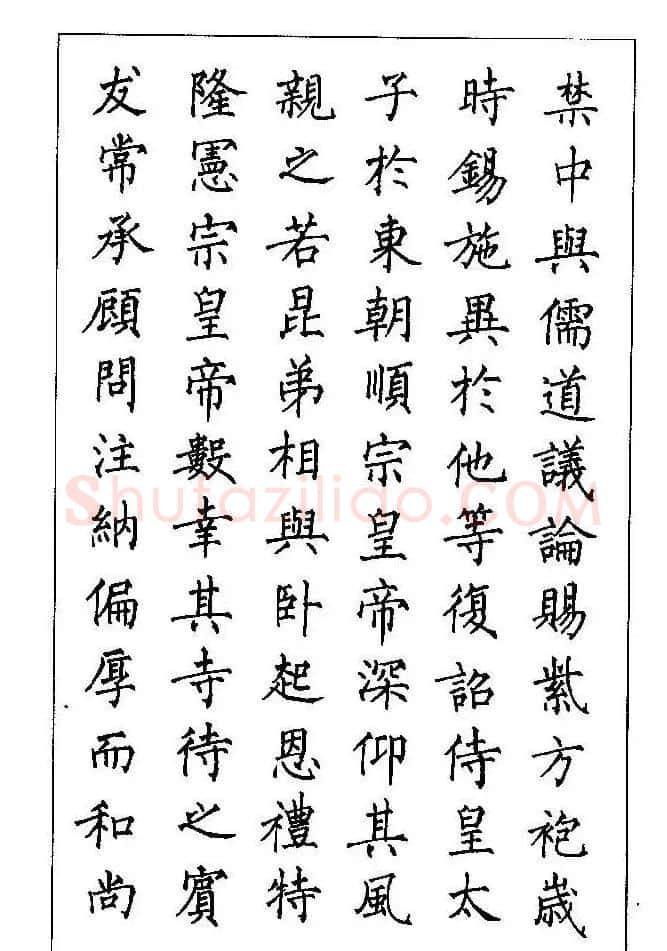 禁中與儒道議論賜紫方袍歲
時錫施異於他等復詔侍皇太
子於東朝順宗皇帝深仰其風
親之若昆弟相與卧起恩禮特
隆憲宗皇帝數幸其寺待之賓
友常承顧問注納偏厚而和尚
Shufaziliao.COM